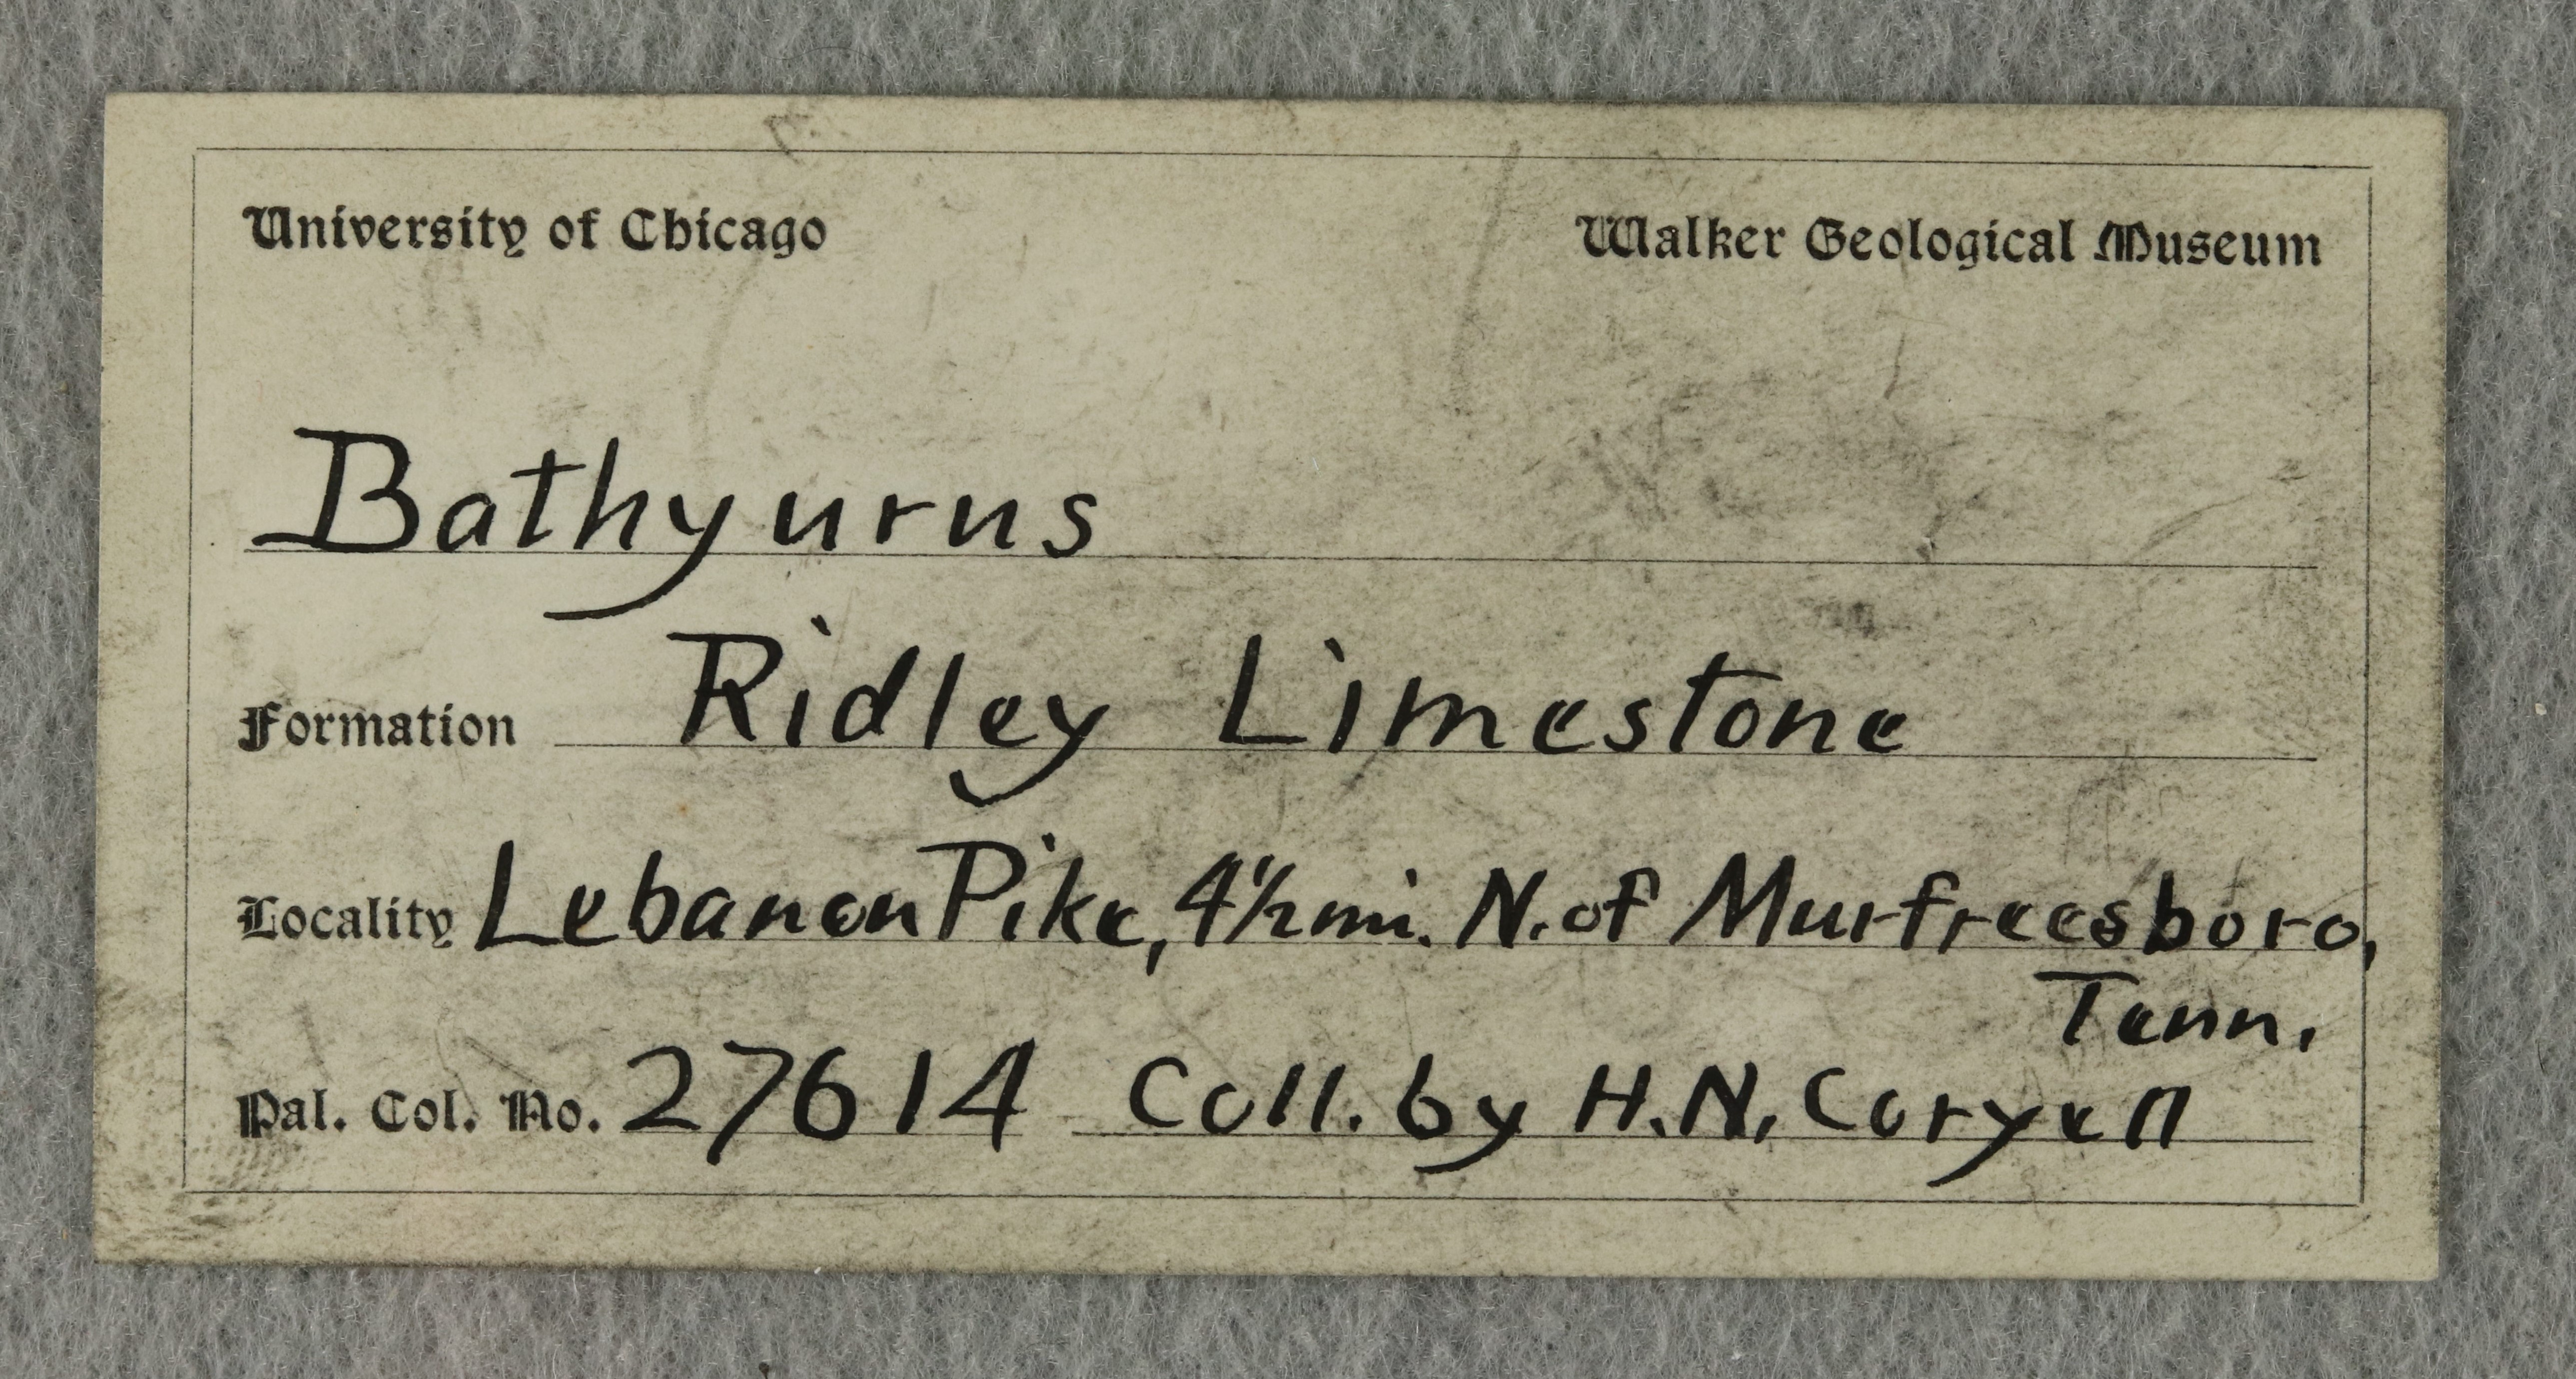 University of Chicago Walker Geological Museum
Bathyurus
Formation Ridley Limestone
Locality Lebanon Pike, 4½ mi. N. of Murfreesboro,
Tenn.
Pal. Col. No. 27614 Coll. by H.N. Coryell